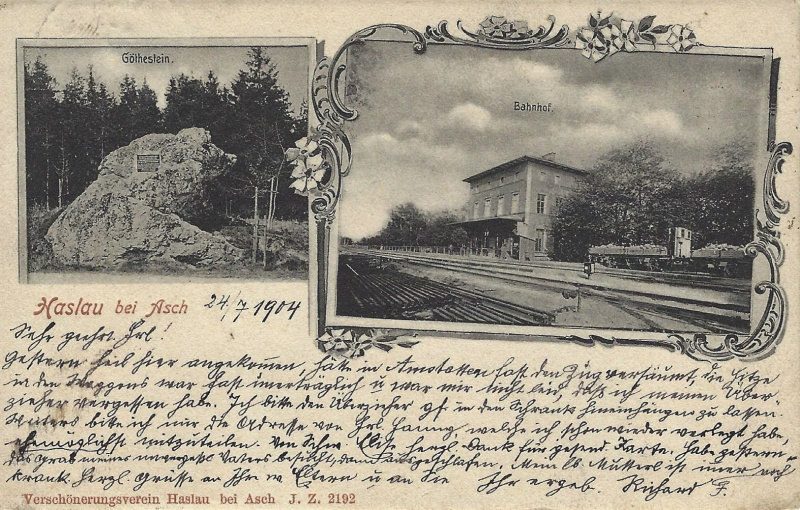 Göthestein.
Bahnhof.
Haslau bei Asch 24./7 1904
Sehr geehrt. Frl!
Gestern heil hier angekommen, hätte in Amstetten fast den Zug versäumt, die Hitze
in den Waggons war fast unerträglich u war mir nicht leid, daß ich meinen Über-
zieher vergessen habe. Ich bitte den Überzieher gf. in den Schrank hineinhängen zu lassen.
Weiters bitte ich mir die Adresse von Frl. welche ich schon wieder verlegt habe,
ehemöglichst mitzuteilen. Von Schw. herzl. Dank für gesend. Karte. Habe gestern
das Grab meines Vaters besucht, dann ausgeschlafen. Mein lb. Mütterl ist imer noch
krank. Herzl. Grüsse an Ihre Eltern u an Sie Ihr ergeb. Richard F.
Verschönerungsverein Haslau bei Asch J. Z. 2192